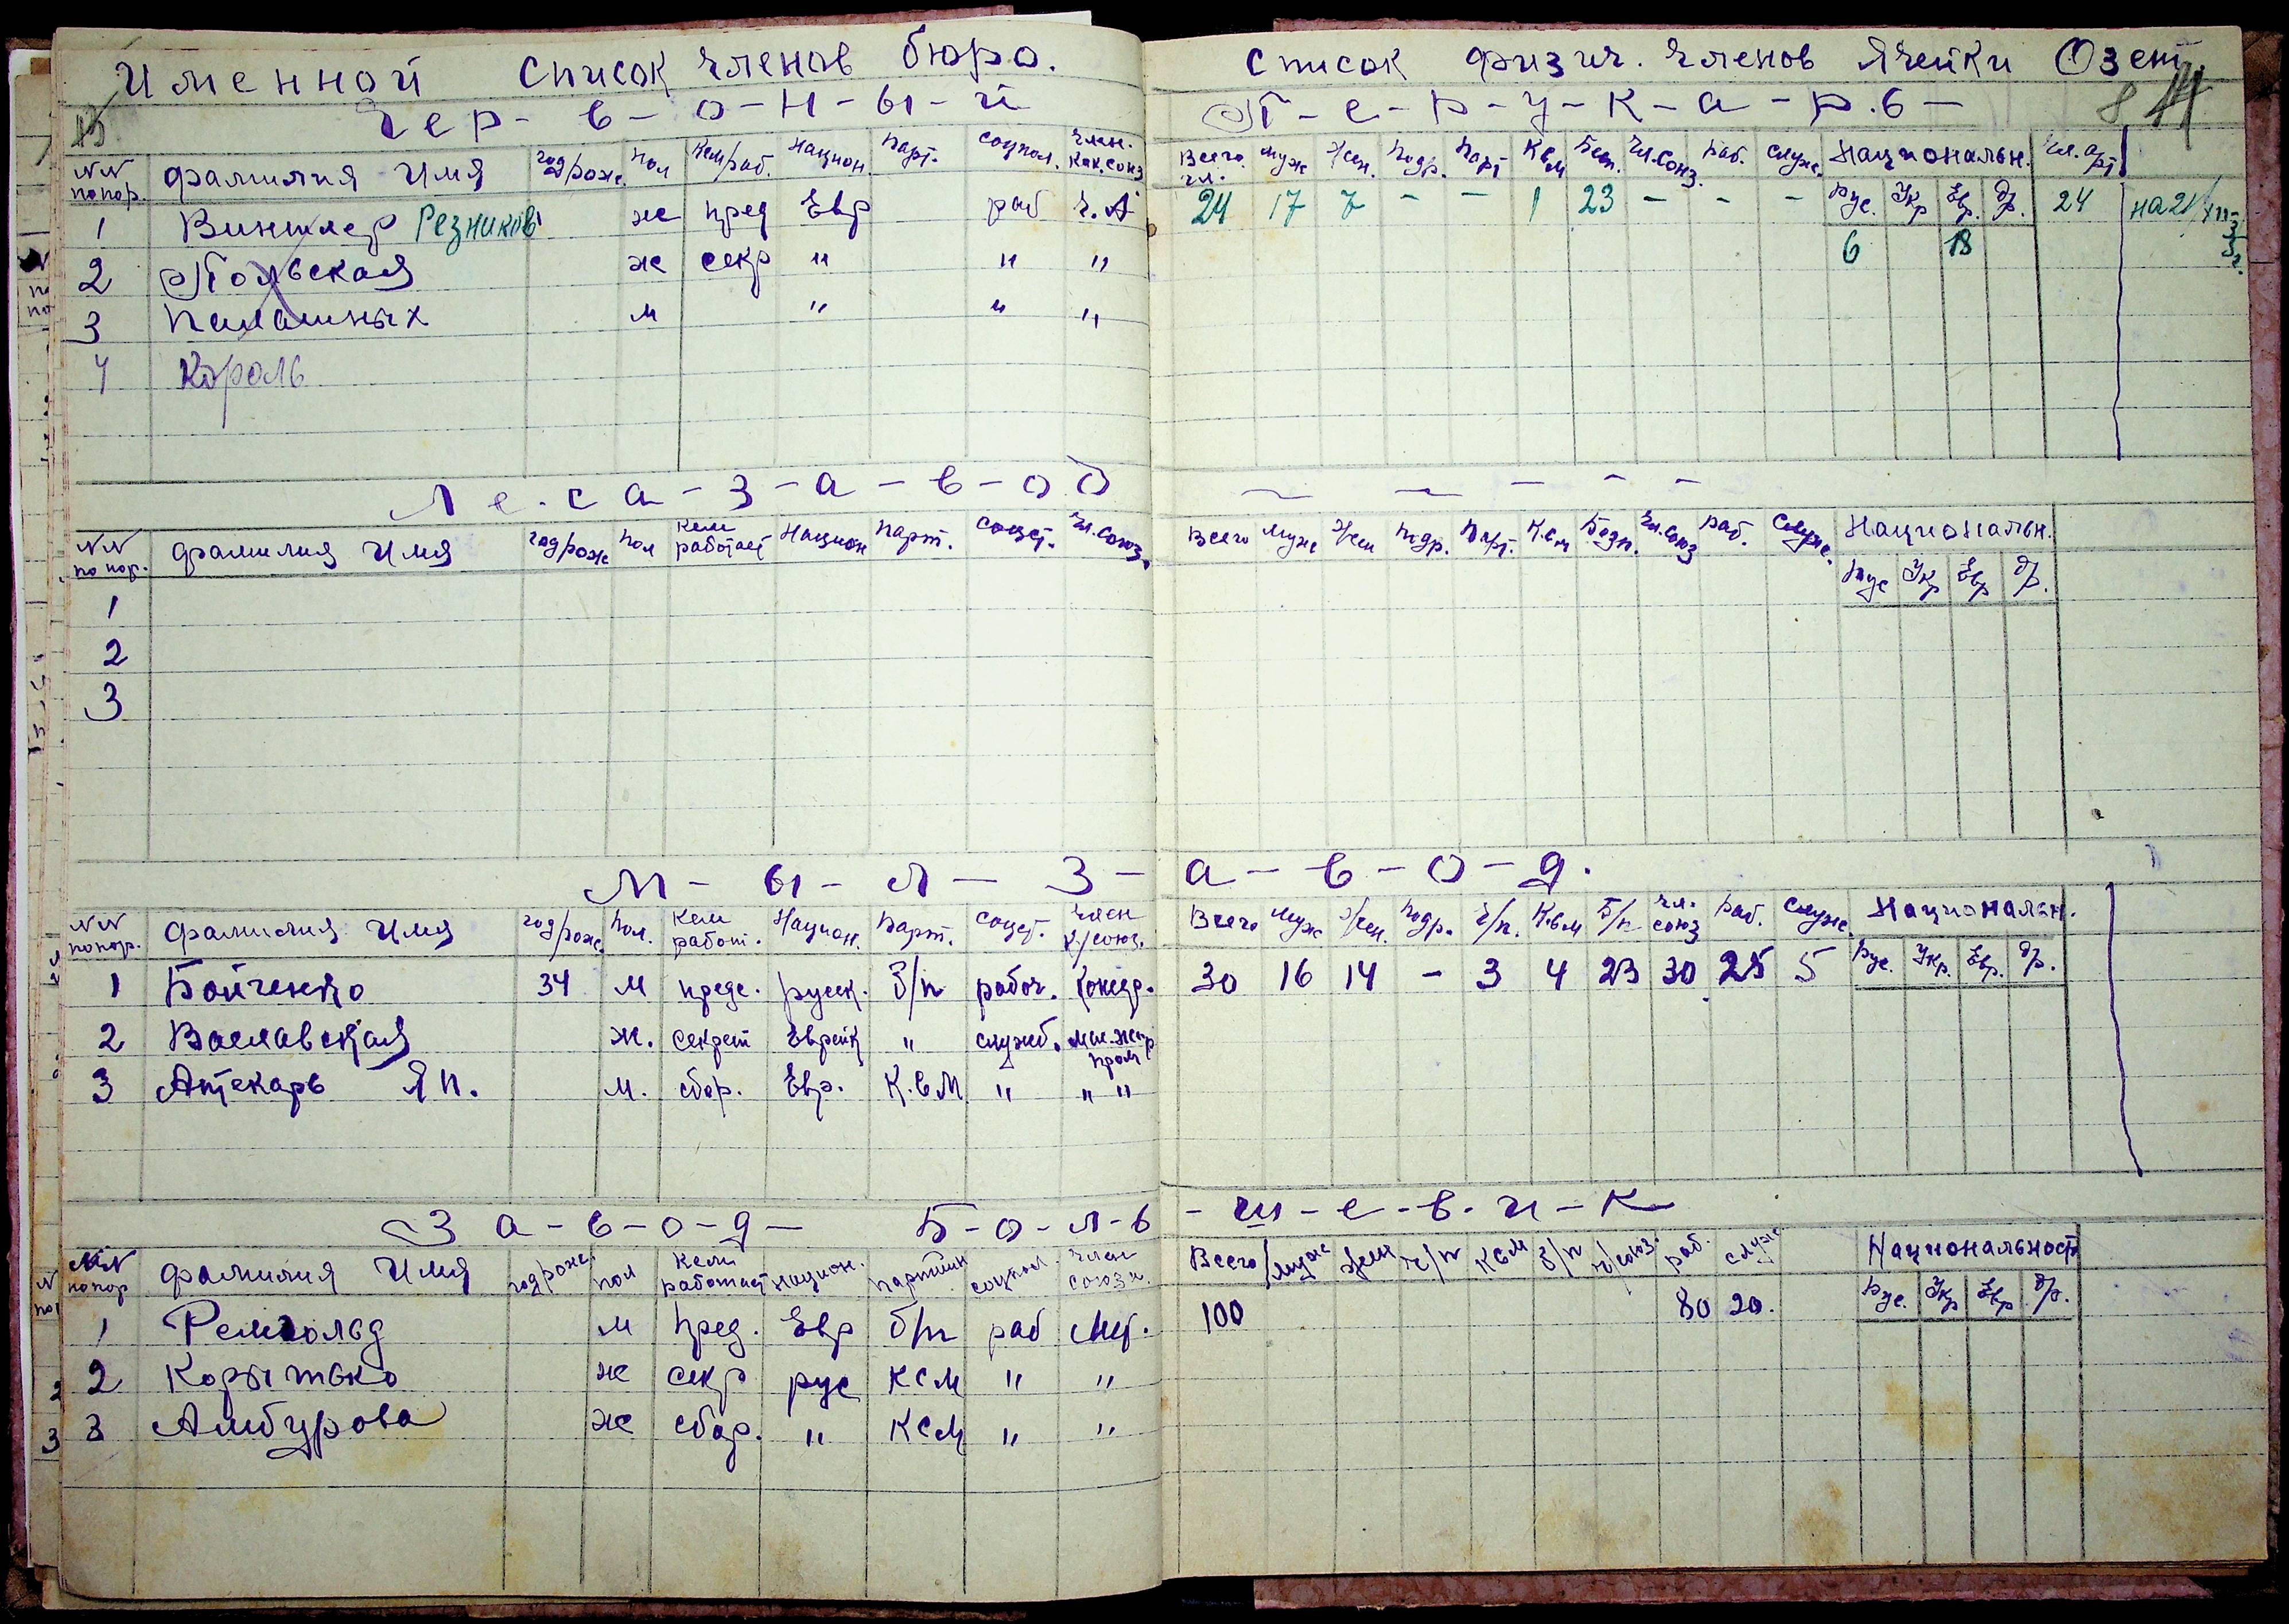 Именной список членов бюро.
Чер-в-о-н-ы-й
NN по пор. фамилия Имя год/рожд. пол Кем/раб. Национ. Парт. соцпол. Член. Как. союз
1 Винклер Резников ж пред Евр раб ч. А
2 Польская ж секр " " "
3 м " " "
4 Король
Ле-с а-з-а-в-од
NN по пор. фамилия Имя год/рож пол Кем работает Национ Парт. соцп. Чл. союз.
1
2
3
М-ы-л-з-
NN по пор. фамилия Имя год/рож. пол. Кем работ. Национ. Парт. соцп. Член союз.
1 Бойченко 34 м предс. русск. Б/п рабоч. Кондр.
2 Ваславская ж. секрет Еврейк " служб.
3 Аптекарь Я П. м. сбор. Евр. К.С.М " " "
З а-в-о-д- Б-о-л-ь
NN по пор фамилия Имя год рожд. пол Кем работает Национ. партийн соцпол. член союза.
1 м Пред. Евр б/п раб
2 Корытько ж секр рус КСМ " "
3 Амбурова ж сбор. " КСМ " "
список физич. членов ячейки Озет.
П-е-р-у-к-а-р.б-
Всего чл. муж Жен. подр. парт КСМ Бесп. Чл. союз. раб. служ. Национальн. Чл. арт
Рус. Укр Евр. др.
24 17 7 - - 1 23 - - - 24 на 21/XII-
6 18
Всего муж Жен подр. парт. К.с.м Безп. Чл. союз раб. служ. Национальн.
Рус Укр Евр др.
а-в-о-д.
Всего муж Жен. подр. Ч/п. К.с.м Б/п чл. союз раб. служ. Национальн.
Рус. Укр. Евр. др.
30 16 14 - 3 4 23 30 25 5
-ш-е-в-и-к
Всего муж жен ч/п КСМ б/п ч/союз. раб. служ Национальност
Рус. Укр Евр др.
100 80 20.